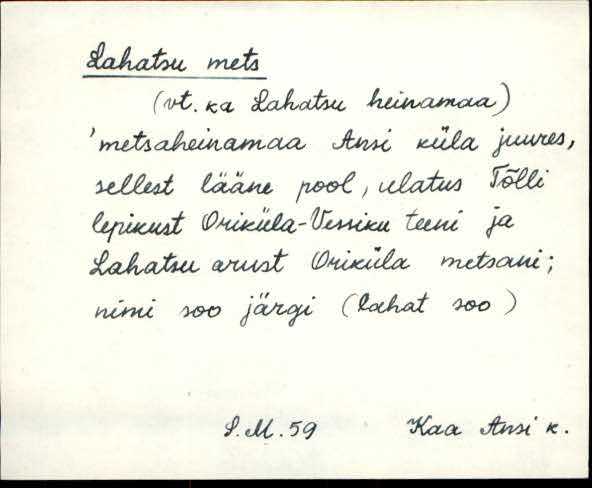 Lahatsu mets
(vt. ka Lahatsu heinamaa)
'metsaheinamaa Ansi küla juures,
sellest lääne pool, ulatus Tõlli
lepikust Oriküla-Vessiku teeni ja
Lahatsu arust Oriküla metsani;
nimi soo järgi (lahat soo)
S.M. 59 Kaa Ansi k.